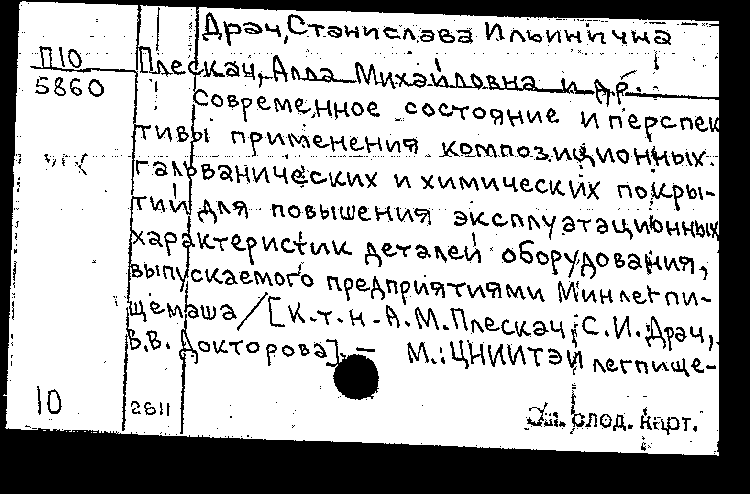 Драч, Станислава Ильинична
П10
Плескач, Алла Михайловна и др.
5860
Современное состояние и перспек
тивы применения композиционных.
гальванических и химических покры-
тий для повышения эксплуатационных
характеристик деталей оборудования,
выпускаемого предприятиями Минлегпи-
щемаша / [К.т.н. А.М.Плескач, С.И.Драч,
В.В. Докторова]. — М.: ЦНИИТЭИ легпище-
10
2611
См. след. карт.